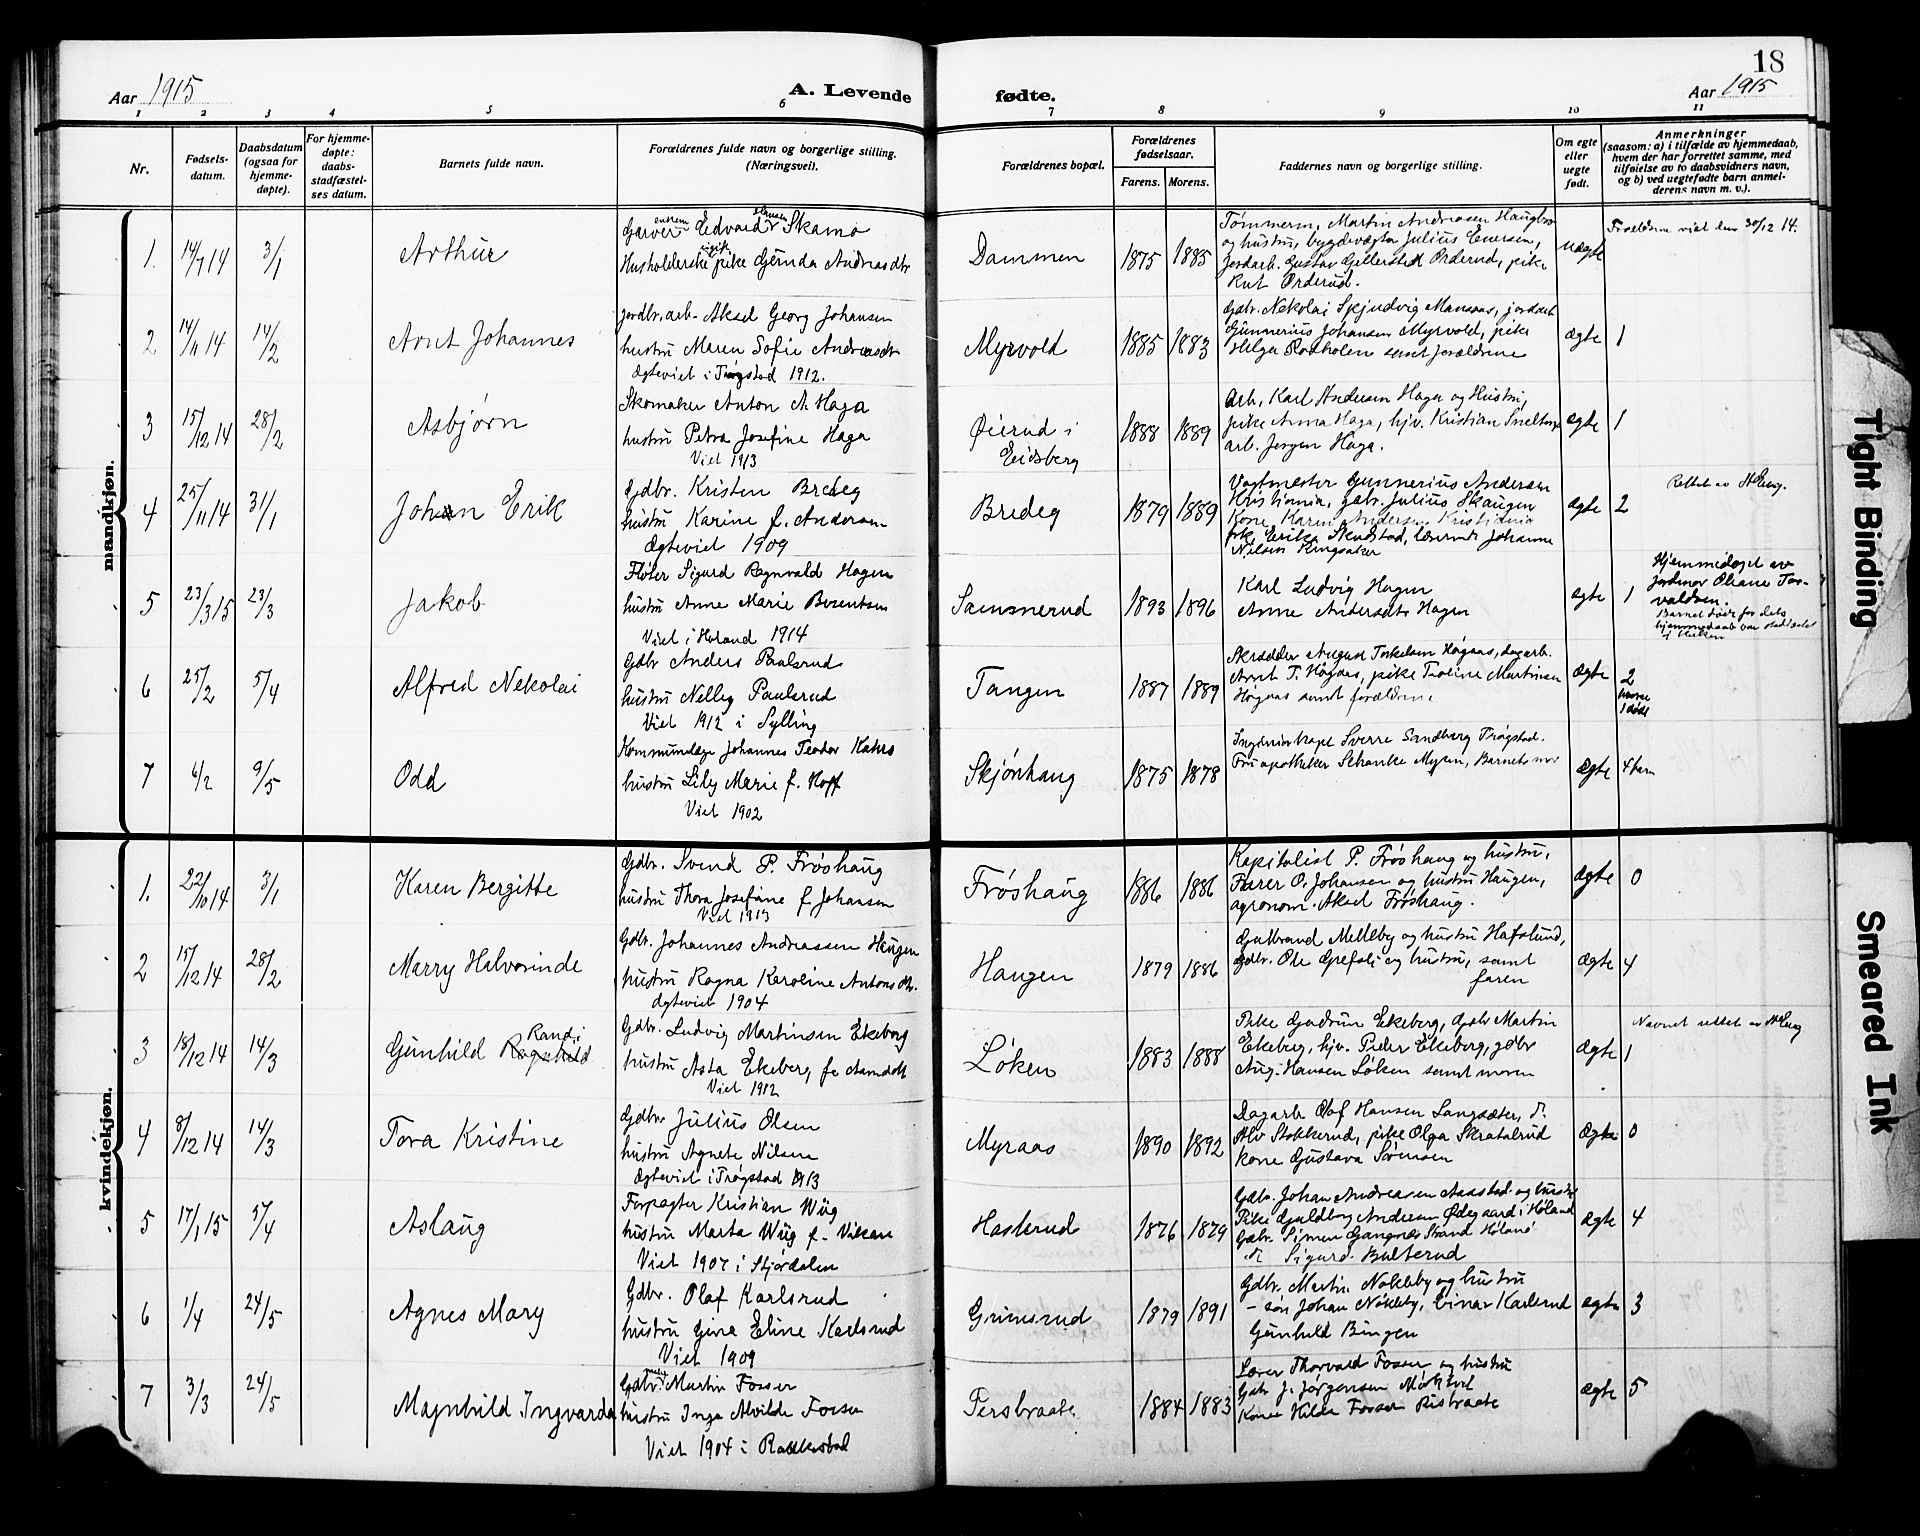 18
Aar 1915
A. Levende
fødte.
Aar 1915
1 2 3 4 5 6 7 8 9 10 11
Nr.
Fødsels-
datum.
Daabsdatum
(ogsaa for
hjemme-
døpte).
For hjemme-
døpte:
daabs-
stadfæstel-
ses datum.
Barnets fulde navn.
Forældrenes fulde navn og borgerlige stilling.
(Næringsvei).
Forældrenes bopæl.
Forældrenes
fødselsaar.
Farens. Morens.
Faddernes navn og borgerlige stilling.
Om egte
eller
uegte
født.
Anmerkninger
(saasom: a) i tilfælde av hjemmedaab,
hvem der har forrettet samme, med
tilføielse av to daabsvidners navn,
og b) ved uegtefødte barn anmel-
derens navn m. v.).
mandkjøn.
1. 14/7 14 3/1 Arthur
Garver Edvard Hansen Skamo
Husholderske pike Gerda Andreasdtr
Dammen 1875 1885
Tømmerm. Martin Andreasen Haugbro
og hustru, bygdevægter Julius Enersen,
Jordarb. Gustav Gellersted Orderud, pike
Rut Orderud.
uægte
Forældrene viet den 30/12 14.
2 14/11 14 14/2 Arnt Johannes
jordbr. arb. Aksel Georg Johansen
hustru Maren Sofie Andreasdtr
Ægteviet i Trøgstad 1912.
Myrvold 1885 1883
Gdbr. Nekolai Skjudvig Mansaas, jordarb
Gunnerius Johansen Myrvold, pike
Helga Rodholen samt forældrene
ægte 1
3 15/12 14 28/2 Asbjørn
Skomaker Anton A. Haga
hustru Petra Josefine Haga
Viet 1913
Øierud i
Eidsberg
1888 1889
Arb. Karl Andersen Haga og Hustru,
pike Anna Haga, hjv. Kristian Sneltorp
arb. Jørgen Haga.
ægte 1
4 25/11 14 31/1 Johan Erik
Gdbr. Kristen Bredeg
hustru Karine f. Andersen
Ægteviet 1909
Bredeg 1879 1889
Vagtmester Gunnerius Andersen
Kristiania, gdbr. Julius Skaugen
Kone Karen Andersen Kristiania
frk. Erika Skudstad, lærerinde Johanne
Nilsen Ringsaker
ægte 2
Rettet av
5 23/3 15 23/3 Jakob
Fløter Sigurd Ragnvald Hagen
hustru Anne Marie Berentsen
Viet i Høland 1914
Sammerud 1893 1896
Karl Ludvig Hagen
Anne Andersdtr Hagen
ægte 1
Hjemmedøpt av
jordmor Oliane Tor-
valdsen.
Barnet døde før dets
hjemmedaab var stadfæstet
i kirken
6 25/2 5/4 Alfred Nekolai
Gdbr Anders Paulsrud
hustru Nelly Paulsrud
Viet 1912 i Sylling
Tangen 1887 1889
Skrædder August Torkelsen Høgaas, dagarb.
Arnt T. Høgaas, pike Troline Martinsen
Høgaas samt forældrene
Ægte 2
hvorav
1 døde
7 6/2 9/5 Odd
Kommunelæge Johannes Teodor Kahrs
hustru Lily Marie f. Hoff
Viet 1902
Skjønhaug 1875 1878
Ingeniørkapt Sverre Sandberg Trøgstad.
Fru apotheker Schanke Mysen, Barnets mor
Ægte 4 barn
kvindekjøn.
1. 22/10 14 3/1 Karen Bergitte
Gdbr. Svend P. Frøshaug
hustru Thora Josefine f. Johansen
Viet 1913
Frøshaug 1886 1886
Kapitalist P. Frøshaug og hustru,
Farer O. Johansen og hustru Haugen,
agronom Aksel Frøshaug.
Ægte 0
2 15/12 14 28/2 Marry Halvorinde
Gdbr. Johannes Andreassen Haugen
hustru Ragna Karoline Antonsdtr.
Ægteviet 1904
Haugen 1879 1886
Gulbrand Melleby og hustru Hafslund,
gdbr. Ole Grefsli og hustru, samt
faren
Ægte 4
3 18/12 14 14/3 Gunhild Ragnhild Randi
Gdbr. Ludvig Martinsen Ekeberg
hustru Asta Ekeberg, f. Aamodt
Viet 1912
Løken 1883 1888
Pike Gudrun Ekeberg, Gdbr Martin
Ekeberg, hjv. Peder Ekeberg, gdbr
Aug. Hansen Løken samt moren
Ægte 1
Navnet rettet av
4 8/12 14 14/3 Tora Kristine
Gdbr. Julius Olsen
hustru Agnete Nilsen
Ægteviet i Trøgstad 1913
Myraas 1890 1892
Dagarb Olaf Hansen Langsæter, d.
Alv Stokkerud, pike Olga Skratalrud
kone Gustava Sørensen
Ægte 0
5 17/1 15 5/4 Aslaug
Forpagter Kristian Wiig
hustru Marta Wiig f. Vikan
Viet 1907 i Stjørdalen
Haslerud 1876 1879
Gdbr. Johan Andreasen Aastad og hustru
Pike Guldborg Andersen Ødegaard i Høland
Gdbr. Simen Gangnæs Strand Høland
d. Sigurd Bulterud
ægte 4
6 1/4 24/5 Agnes Mary
Gdbr. Olaf Karlsrud
hustru Gina Eline Karlsrud
Viet 1909
Grimsrud 1879 1891
Gdbr. Martin Nokleby og hustru
- søn Johan Nokleby, Einar Karlsrud
Gunhild Bingen
ægte 3
7 3/3 24/5 Magnhild Ingvarda
Gdbr. Martin Fosser
hustru Inga Alvilde Fosser
Viet 1904 i Rakkestad
Persbraate 1884 1883
Lærer Thorvald Fosser og hustru
Gdbr J. Jørgensen Mørkved
Kone Hilda Fosser Risbraate
ægte 5
Tight Binding
Smeared Ink